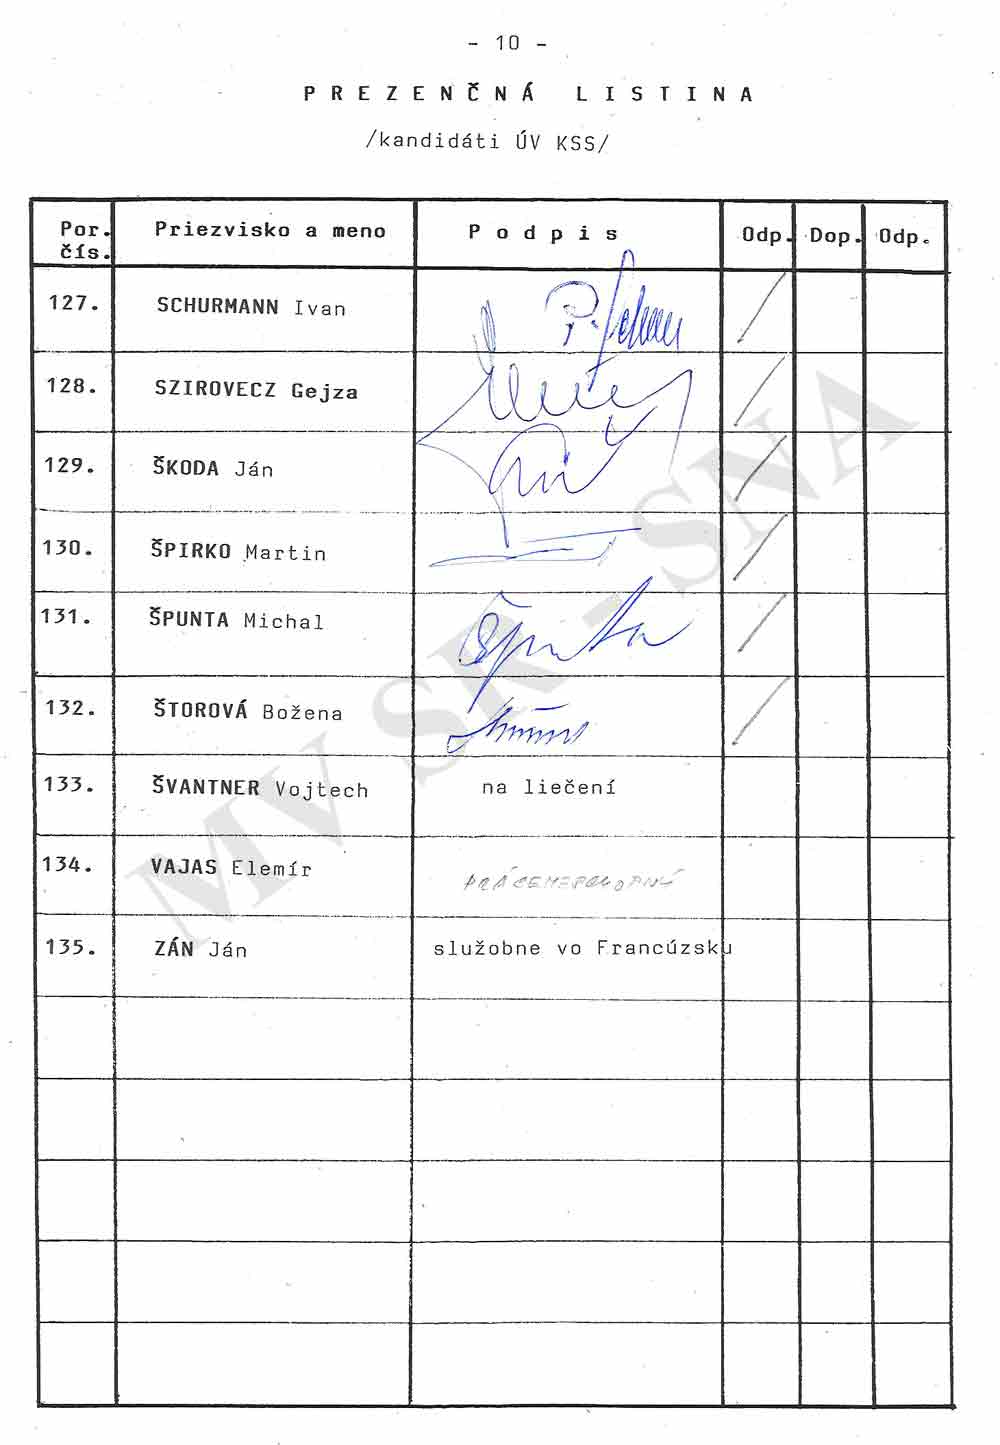 - 10 -
PREZENČNÁ LISTINA
/kandidáti ÚV KSS/
Por. čís. Priezvisko a meno Podpis Odp. Dop. Odp.
127. SCHURMANN Ivan
128. SZIROVECZ Gejza
129. ŠKODA Ján
130. ŠPIRKO Martin
131. ŠPUNTA Michal Špunta
132. ŠTOROVÁ Božena
133. ŠVANTNER Vojtech na liečení
134. VAJAS Elemír PRÁCENESCHOPNÝ
135. ZÁN Ján služobne vo Francúzsku
MV SR - SNA